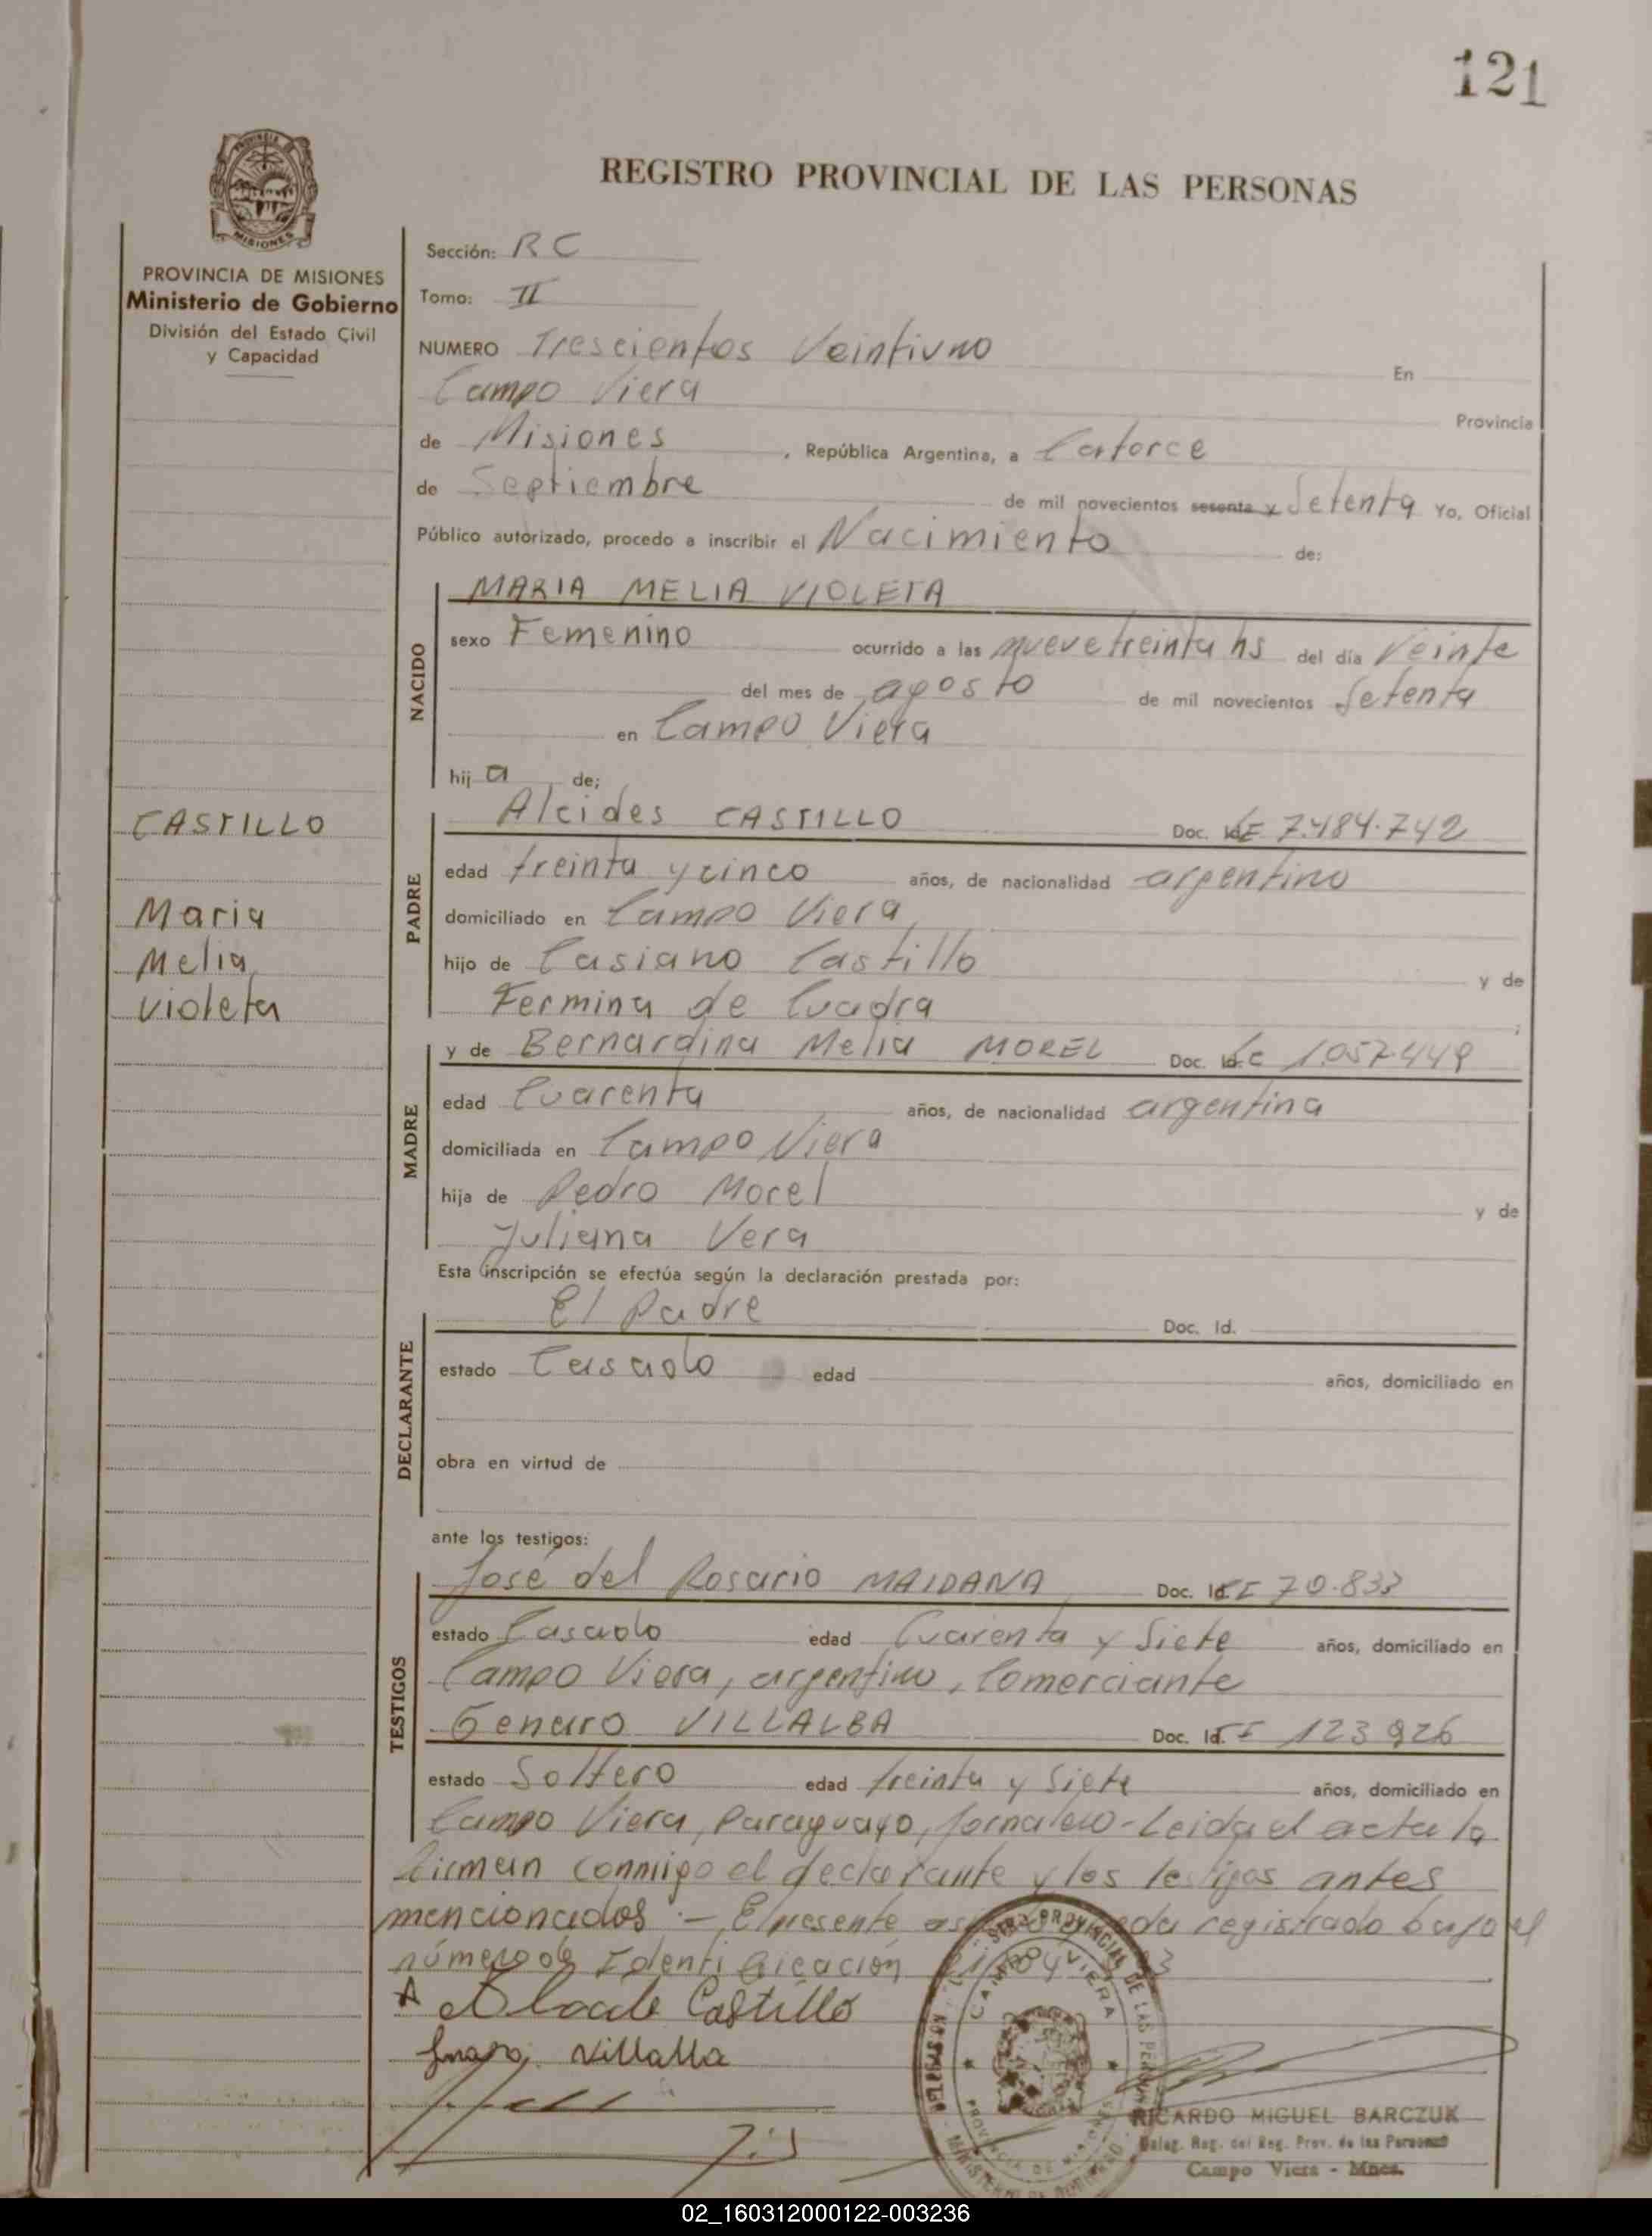 121
REGISTRO PROVINCIAL DE LAS PERSONAS
MISIONES
PROVINCIA DE MISIONES
Ministerio de Gobierno
División del Estado Civil
y Capacidad
CASTILLO
Maria
Melia
violeta
Sección: RC
Tomo: II
NUMERO Trescientos Veintiuno En
Campo Viera Provincia
de Misiones , República Argentina, a Catorce
de Septiembre de mil novecientos sesenta y Setenta Yo, Oficial
Público autorizado, procedo a inscribir el Nacimiento de:
NACIDO
MARIA MELIA VIOLETA
sexo Femenino ocurrido a las nueve treinta hs del día Veinte
del mes de agosto de mil novecientos Setenta
en Campo Viera
hij a de;
PADRE
Alcides CASTILLO Doc. LE 7.484.742
edad treinta y cinco años, de nacionalidad argentino
domiciliado en Campo Viera
hijo de Casiano Castillo y de
Fermina de Cuadra ;
MADRE
y de Bernardina Melia MOREL Doc. LC 1.057.449
edad Cuarenta años, de nacionalidad argentina
domiciliada en Campo Viera
hija de Pedro Morel y de
Juliana Vera
Esta inscripción se efectúa según la declaración prestada por:
DECLARANTE
El Padre Doc. Id.
estado Casado edad años, domiciliado en
obra en virtud de
ante los testigos:
TESTIGOS
José del Rosario MAIDANA Doc. Id. 70.833
estado Casado edad Cuarenta y Siete años, domiciliado en
Campo Viera, argentino, Comerciante
Genaro VILLALBA Doc. Id. 123926
estado Soltero edad treinta y Siete años, domiciliado en
Campo Viera, Paraguayo, jornalero - Leida el acta la
firman conmigo el declarante y los testigos antes
mencionados .- El presente registrado bajo el
número de Identificación
Castillo
Villalba
CAMPO VIERA
PROVINCIA DE MISIONES
RICARDO MIGUEL BARCZUK
Deleg. Reg. del Reg. Prov. de las Personas
Campo Viera - Mnes.
02_160312000122-003236